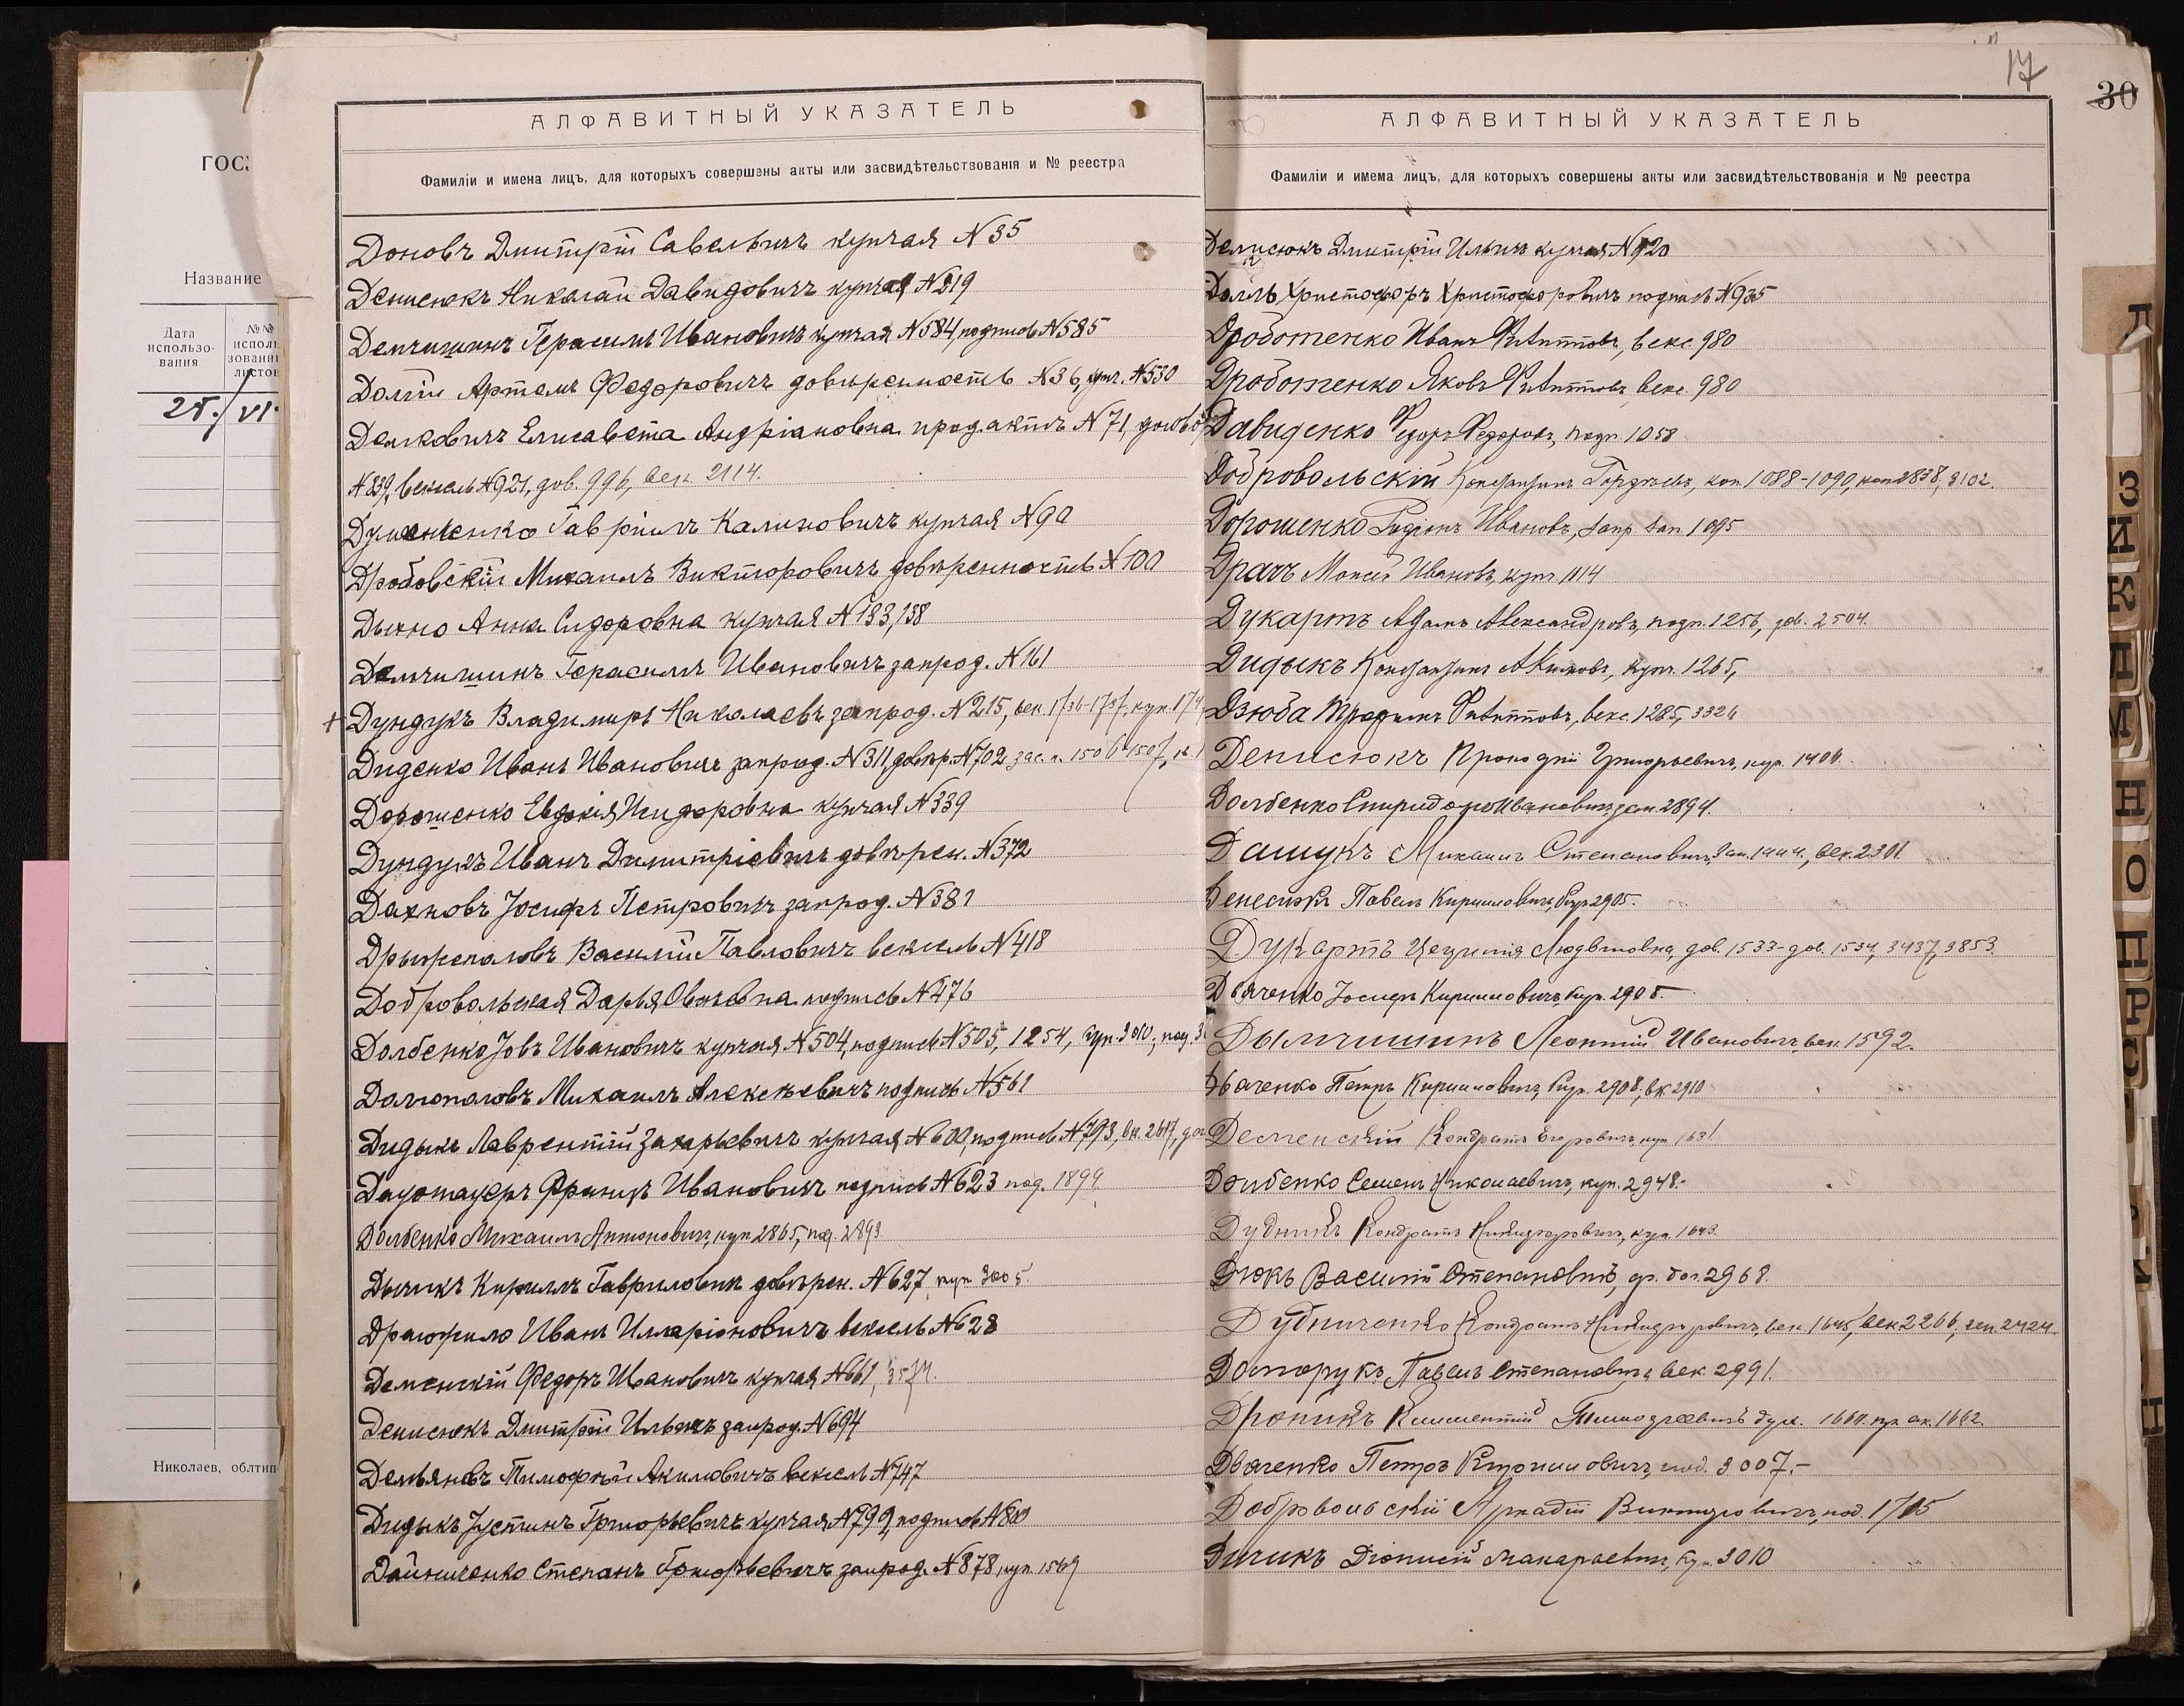 ГОС
Название
Дата использо- вания
№№ исполь зовани листов
25/VI
Николаев, облтип
АЛФАВИТНЫЙ УКАЗАТЕЛЬ
Фамиліи и имена лицъ, для которыхъ совершены акты или засвидѣтельствованія и № реестра
Доновъ Дмитрій Савельичъ купчая N35
Денисюкъ Николай Давидовичъ купчая N219
Демчишинъ Герасимъ Ивановичъ купчая N584, подпись N585
Долгій Артемъ Федоровичъ довѣренность N36, купч. N530
Демковичъ Елисавета Андріановна прод. актъ N71,
N839, вексель N921, дов. 996, век. 2114.
Гавріилъ Калиновичъ купчая N90
Дробовскій Михаилъ Викторовичъ довѣренность N100
Дыхно Анна Сидоровна купчая N133, 138
Демчишинъ Герасимъ Ивановичъ запрод. N161
+ Дундукъ Владимиръ Николаевъ запрод. N215, век. 1736-1737, куп. 174
Диденко Иванъ Ивановичъ запрод. N311, довѣр. N702 зас. к. 1506-1507,
Дорошенко Евдокія Исидоровна купчая N339
Дундукъ Иванъ Димитріевичъ довѣрен. N372
Дахновъ Іосифъ Петровичъ запрод. N381
Василій Павловичъ вексель N418
Добровольская Дарья подпись N476
Долбенко Іовъ Ивановичъ купчая N504, подпись N505, 1254, куп. 3010, под.
Михаилъ Алексѣевичъ подпись N561
Дидыкъ Лаврентій Захарьевичъ купчая N600, подпись N793, вк. 2617,
Францъ Ивановичъ подпись N623 под. 1899
Долбенко Михаилъ Антоновичъ, куп. 2865, под. 2893
Дычикъ Кириллъ Гавриловичъ довѣрен. N627, куп. 3005.
Иванъ Илларіоновичъ вексель N628
Деменскій Федоръ Ивановичъ купчая N661, 3574.
Денисюкъ Дмитрій Ильичъ запрод. N694
Демьяновъ Тимофѣй Акимовичъ вексель N747
Дидыкъ Іустинъ Григорьевичъ купчая N799, подпись N800
Дайниченко Степанъ Григорьевичъ запрод. N878, куп. 1569
17
30
АЛФАВИТНЫЙ УКАЗАТЕЛЬ
Фамиліи и имема лицъ, для которыхъ совершены акты или засвидѣтельствованія и № реестра
Денисюкъ Дмитрій Ильичъ купчая N920
Христофоръ Христофоровичъ подпись N935
Дроботенко Иванъ Филипповъ, векс. 980
Дроботенко Яковъ Филипповъ, векс. 980
Давиденко Федоръ Федоровъ, подп. 1058
Добровольскій Константинъ Гордѣевъ, коп. 1088-1090, коп. 2838, 3102.
Дорошенко Родіонъ Ивановъ, запр. зап. 1095
Драчъ Моисей Ивановъ, купч. 1114
Дукартъ Адамъ Александровъ, подп. 1256, дов. 2504.
Дидыкъ Константинъ Акимовъ, купч. 1265,
Дзюба Трофимъ Филипповъ, векс. 1285, 3326
Денисюкъ Григорьевичъ, кур. 1404.
Долбенко Спиридонъ Ивановичъ, 2894.
Дащукъ Михаилъ Степановичъ, зап. 1444, век. 2301
Денесюкъ Павелъ Кирилловичъ, кур. 2905.
Дукартъ Цецилія Людвиговна, дов. 1533-дов. 1534, 3437, 3853.
Дьяченко Іосифъ Кирилловичъ, кур. 2908.
Дымчишинъ Леонтій Ивановичъ, век. 1592.
Дьяченко Петръ Кирилловичъ, кур. 2908, вк. 2910
Деменскій Кондратъ Егоровичъ, куп. 1631
Долбенко Семенъ Николаевичъ, куп. 2948.-
Дудникъ Кондратъ Никифоровичъ, куп. 1643.
Дюкъ Василій Степановичъ, 2968.
Дудниченко Кондратъ Никифоровичъ, век. 1645, век. 2266, 2424.
Павелъ Степановичъ, век. 2991.
Дроникъ Климентій Тимофеевичъ дух. 1660. пр. ак. 1662.
Дьяченко Петръ Кирилловичъ, под. 3007.-
Добровольскій Аркадій Викторовичъ, под. 1705
Дичикъ Діонисій Макаровичъ, кун. 3010
Д
З
И
К
Л
М
Н
О
П
Р
С